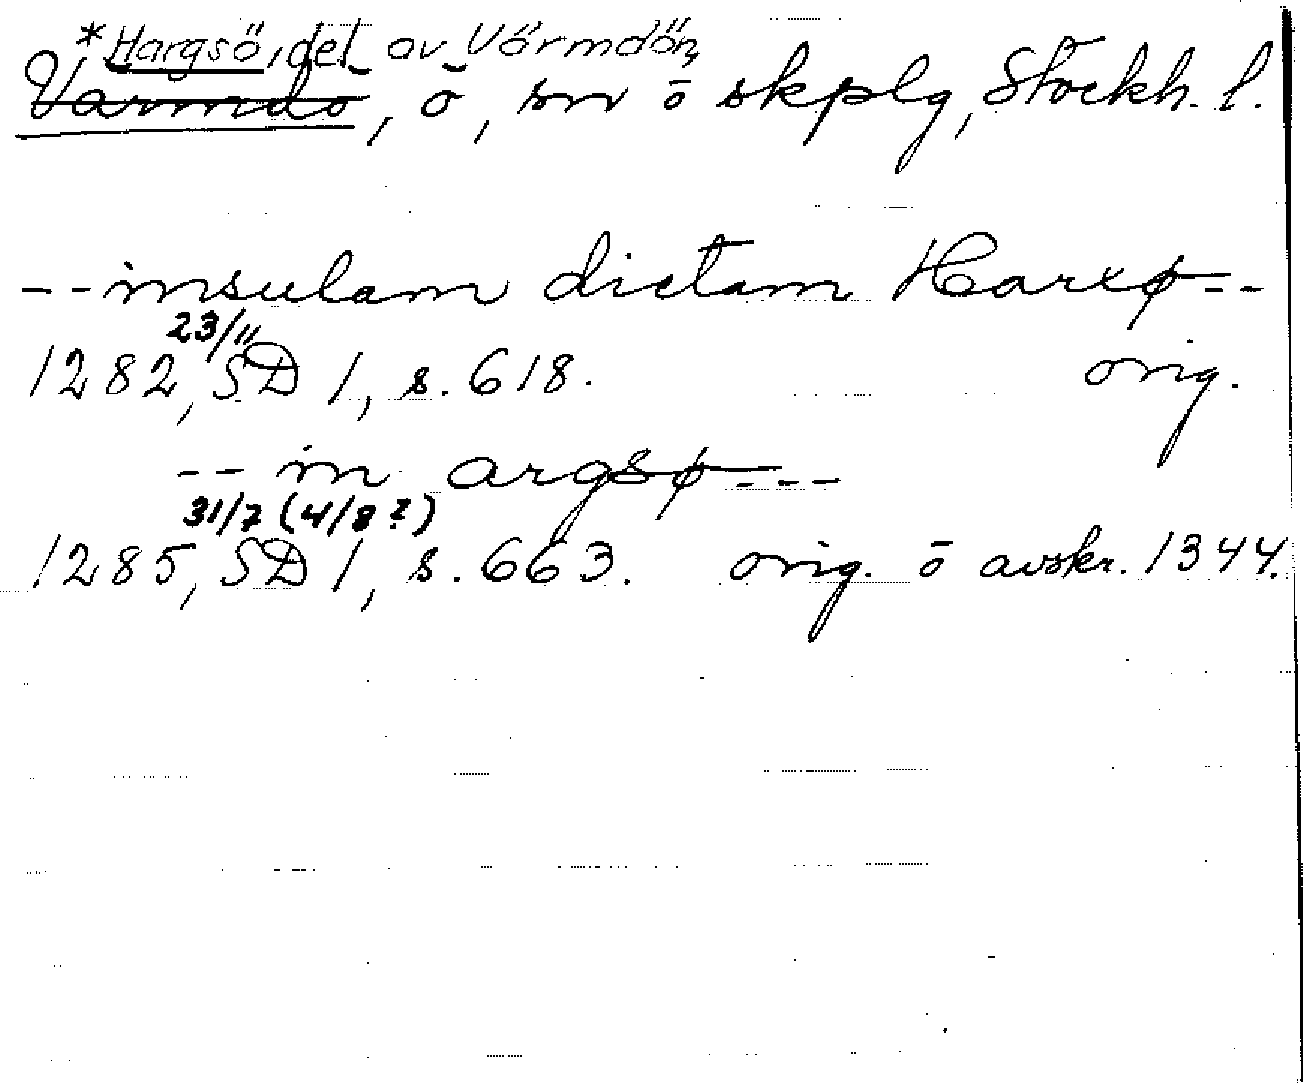 *Hargsö, del av Värmdön,
Värmdö, ö, sn o skplg, Stockh. l.
--insulam dictam Harxø--
23/11
1282, SD 1, s. 618. orig.
-- in argsø---
31/7 (4/8?)
1285, SD 1, s. 663. orig. o avskr. 1344.